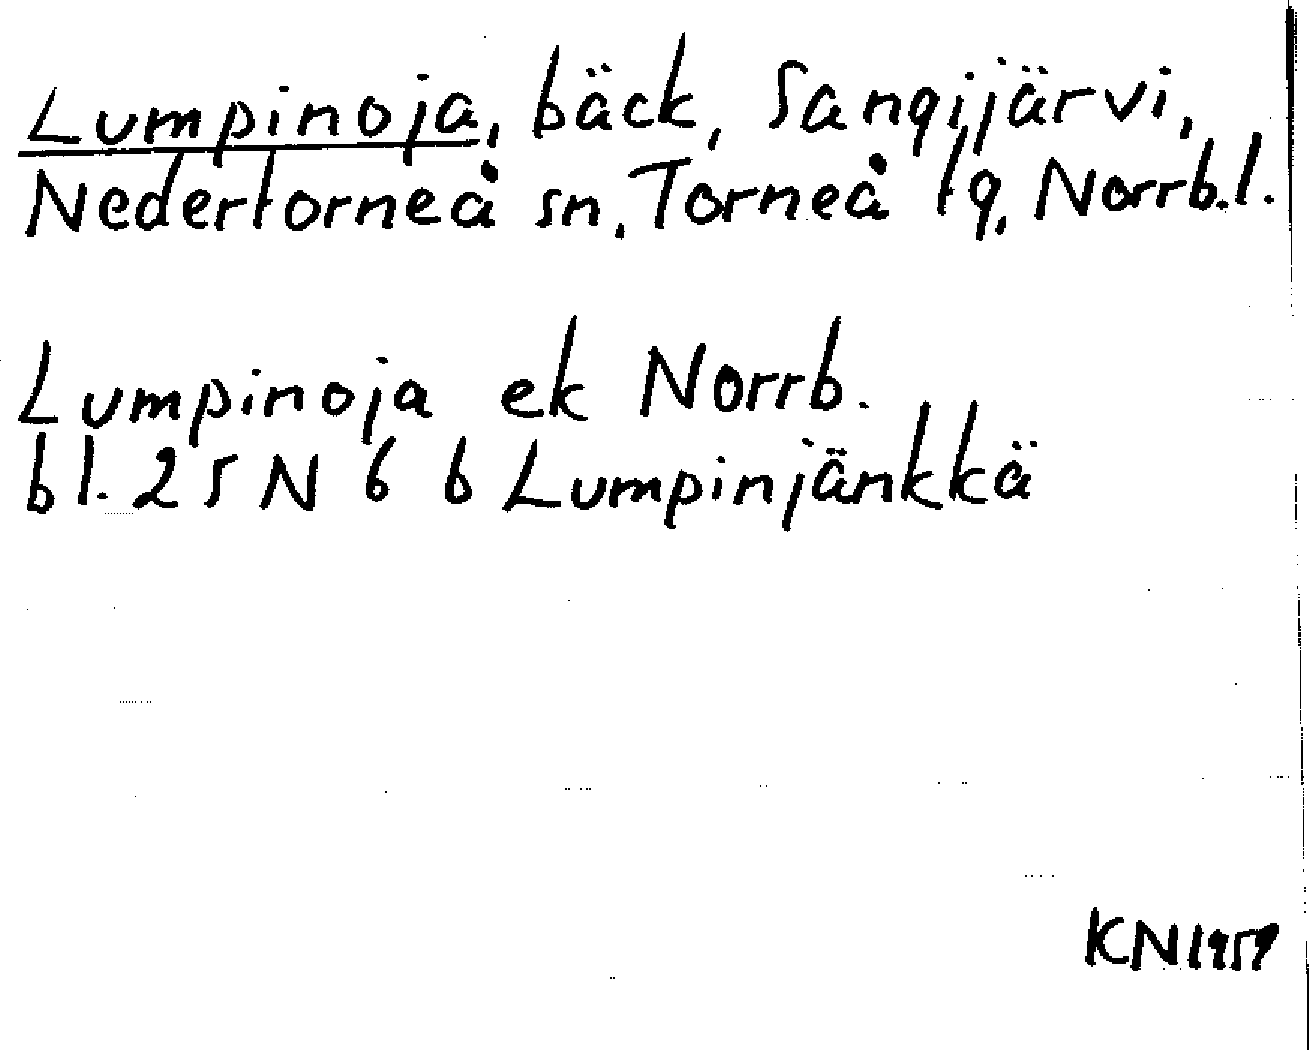 Lumpinoja, bäck, Sangijärvi,
Nedertorneå sn, Torneå tg, Norrb.l.
Lumpinoja ek Norrb.
bl. 25 N 6 b Lumpinjänkkä
KN 1959